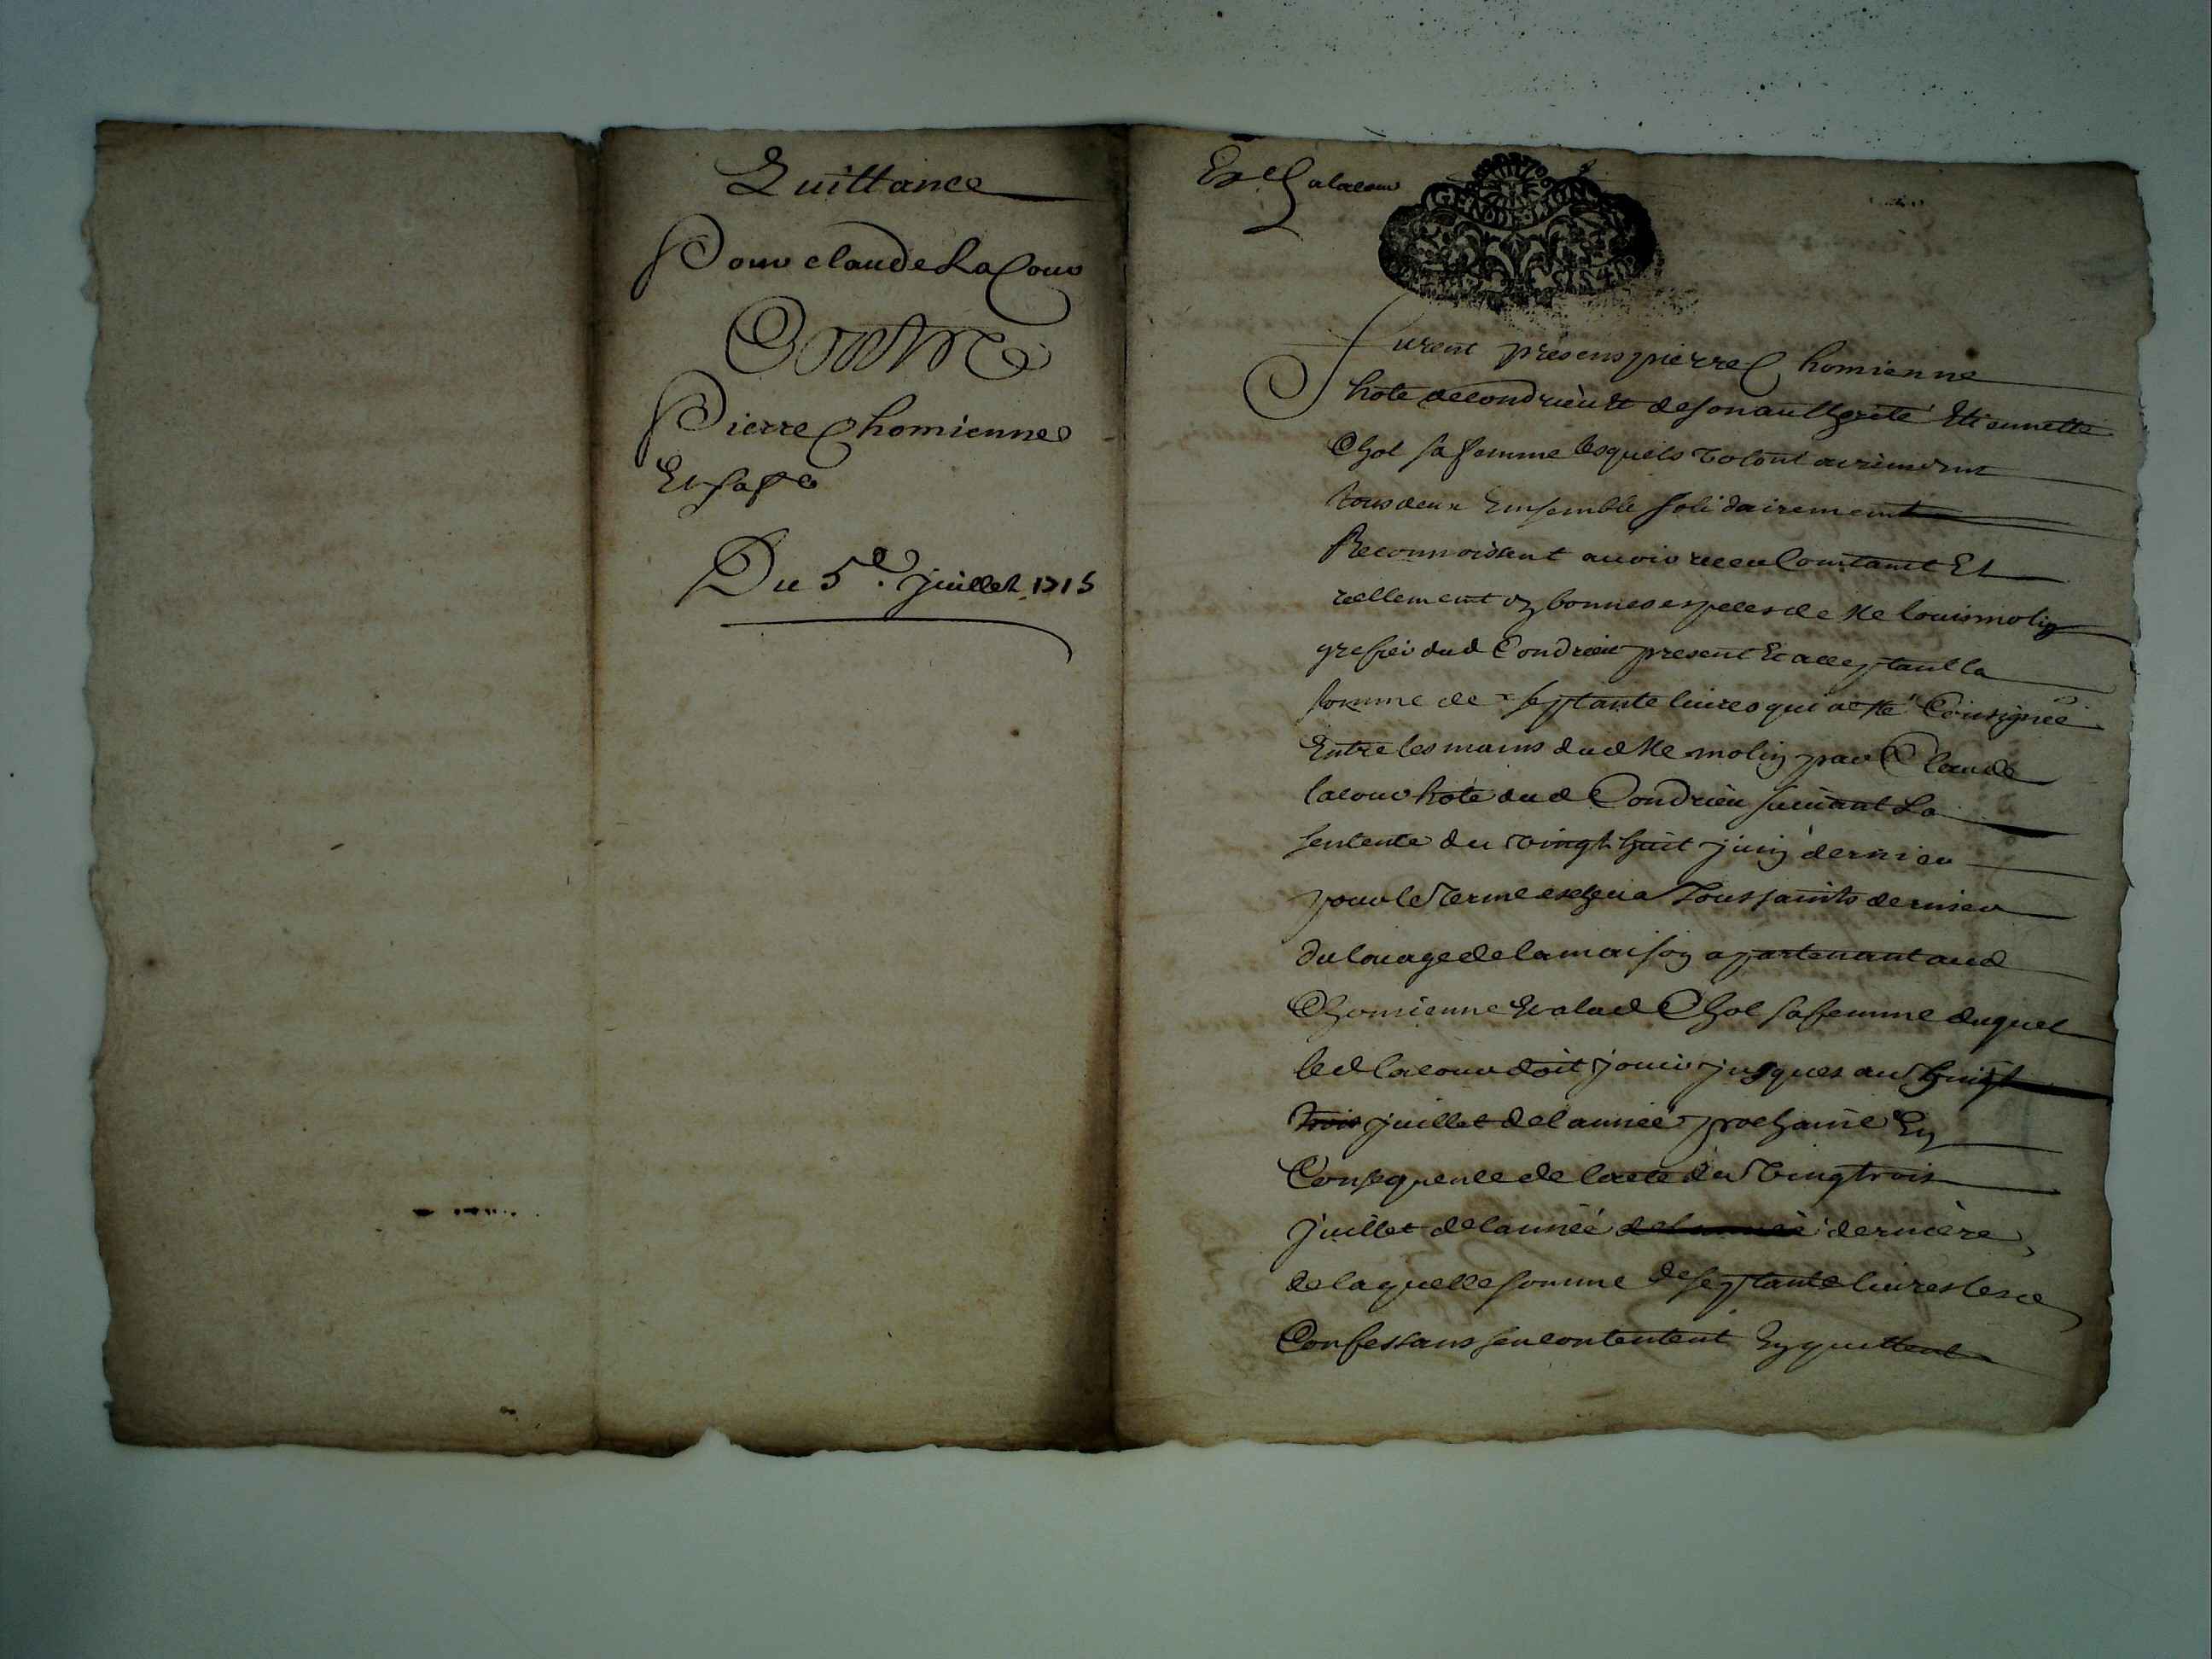 Quittance
Pour claude La Cour
Contre
Pierre Chomienne
Et sa fe
Du 5e. juillet 1715
Exe Lacour
GEN DE LYON
furent presens pierre Chomienne
hote de condrieu et de son authorité Etiennette
Chol sa femme lesquels volontairement
tous deux Ensemble solidairement
Reconnoissent avoir receu Contant Et
reellement en bonnes especes de Me louis molin
grefier dud Condrieu present Et acceptant la
somme de septante livres qui a esté Consignée
Entre les mains dud Me molin par Claude
lacour hote dud Condrieu suivant La
sentence du vingt huit juin dernier
pour le terme escheu a Toussaints dernier
du louage de la maison apartenant aud
Chomienne Et a lad Chol sa femme duquel
led lacour doit jouir jusques au vingt
trois juillet de lannée prochaine En
Consequence de lacte du vingtrois
juillet de lannée dernière
de laquelle somme de septante livres lesd
Confessans sen contentent En quittent